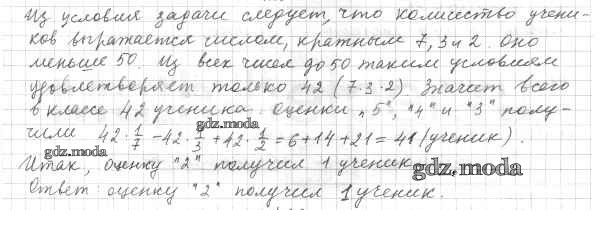 Из условия задачи следует, что количество учени-
ков выражается числом, кратным 7, 3 и 2. Оно
меньше 50. Из всех чисел до 50 таким условиям
удовлетворяет только 42 (7·3·2). Значит всего
в классе 42 ученика. Оценки „5", "4" и "3" полу-
gdz.moda
чили 42·1/7-42·1/3+42·1/2=6+14+21=41 (ученик).
gdz.moda
Итак, оценку "2" получил 1 ученик
gdz.moda
Ответ: оценку "2" получил 1 ученик.